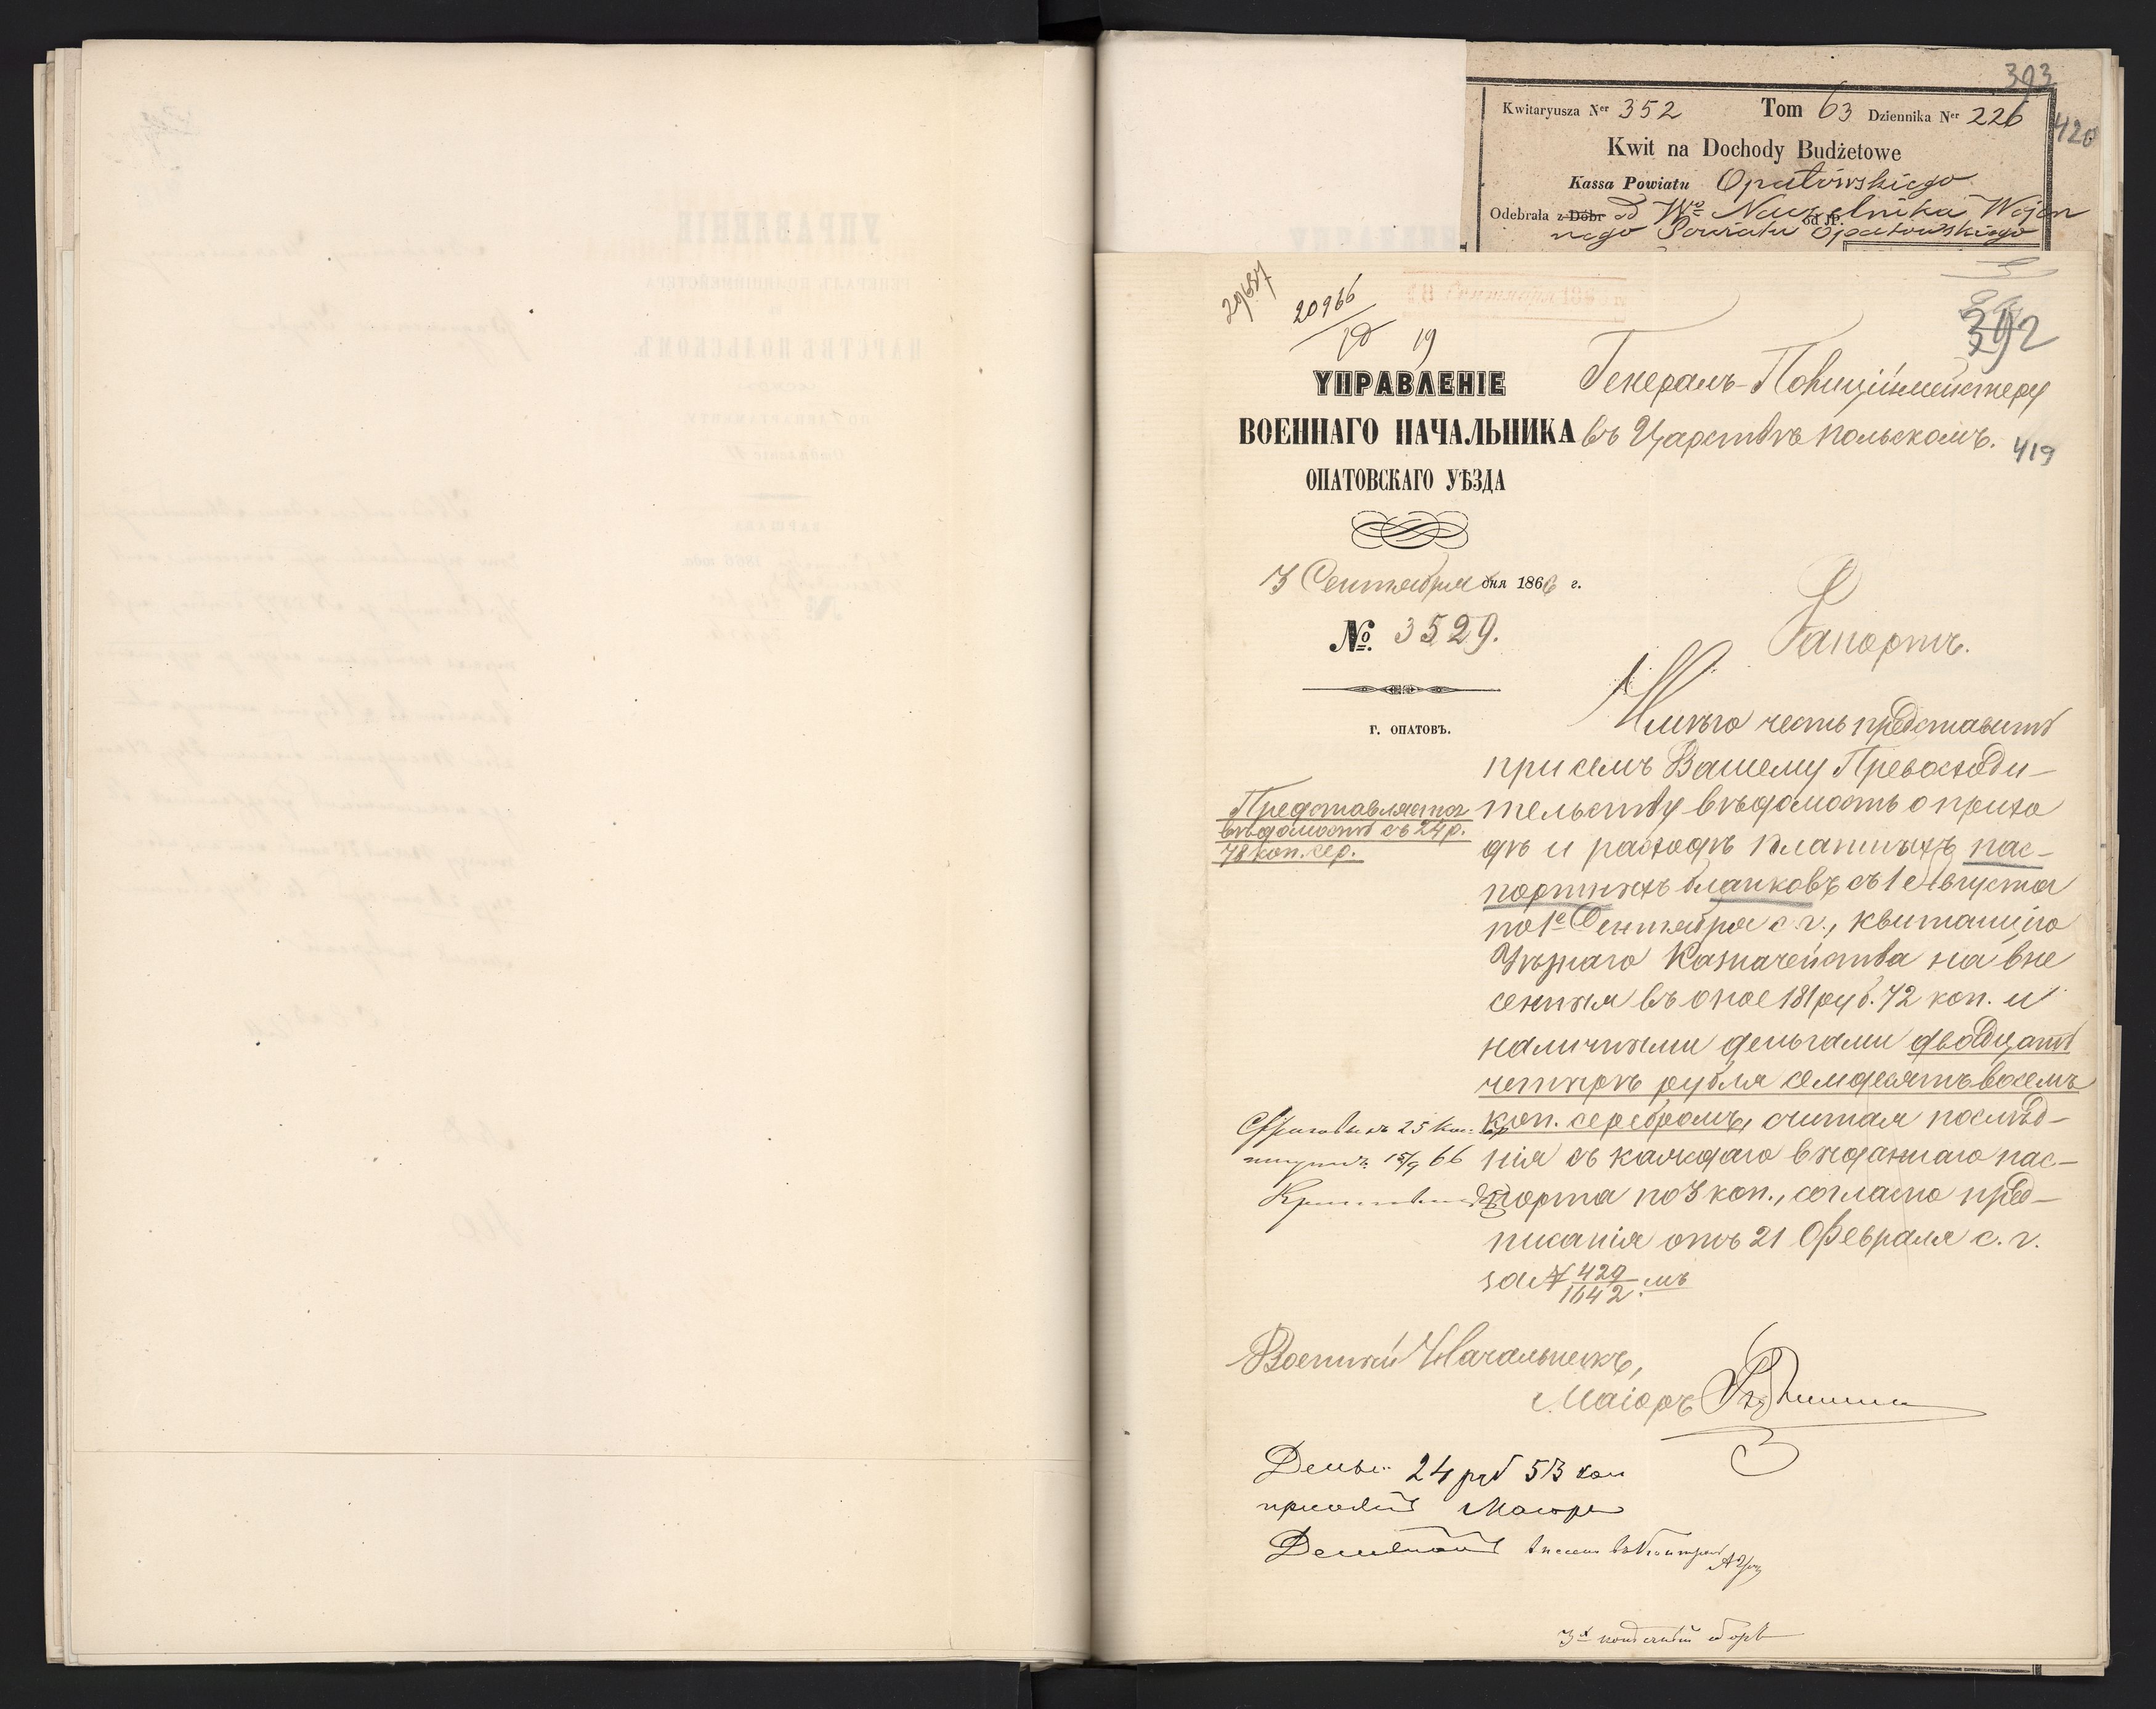 393
Kwitaryusza Ner 352 Tom 63 Dziennika Ner 226
420
Kwit na Dochody Budżetowe
Kassa Powiatu Opatowskiego
Odebrała z Dóbr od Wo Naczelnika Wojen
od JP.
nego Powiatu Opatowskiego
20966
19
392
УПРАВЛЕНІЕ
ВОЕННАГО НАЧАЛЬНИКА
ОПАТОВСКАГО УѢЗДА
3 Сентября дня 1866 г.
№ 3529.
Г. ОПАТОВЪ.
Генералъ-Полиціймейстеру
въ Царствѣ Польскомъ.
419
Рапортъ.
Имѣю честь представить
при семъ Вашему Превосходи-
тельству вѣдомость о прихо
дѣ и расходѣ платныхъ пас-
портныхъ бланковъ съ 1 Августа
по 1е Сентября с. г., квитанцію
Уѣзднаго Казначейства на вне
сенныя въ оное 181 руб. 72 коп. и
наличными деньгами двадцать
четыре рубля семдесятъ восемь
коп. серебромъ, считая послѣд-
нія съ каждаго выданнаго пас-
порта по 3 коп., согласно пред-
писанія отъ 21 Февраля с. г.
за № 429/1642.мъ
Представляется
вѣдомость съ 24 р.
78 коп. сер.
25 коп.
15/9 66
Военный Начальникъ,
Маіоръ
Деньги 24 руб 53 коп
принялъ Маіоръ
3х копѣечный сборъ